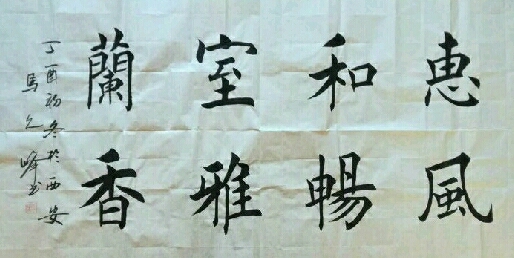 惠風
和暢
室雅
蘭香
丁酉初冬於西安
馬峰书